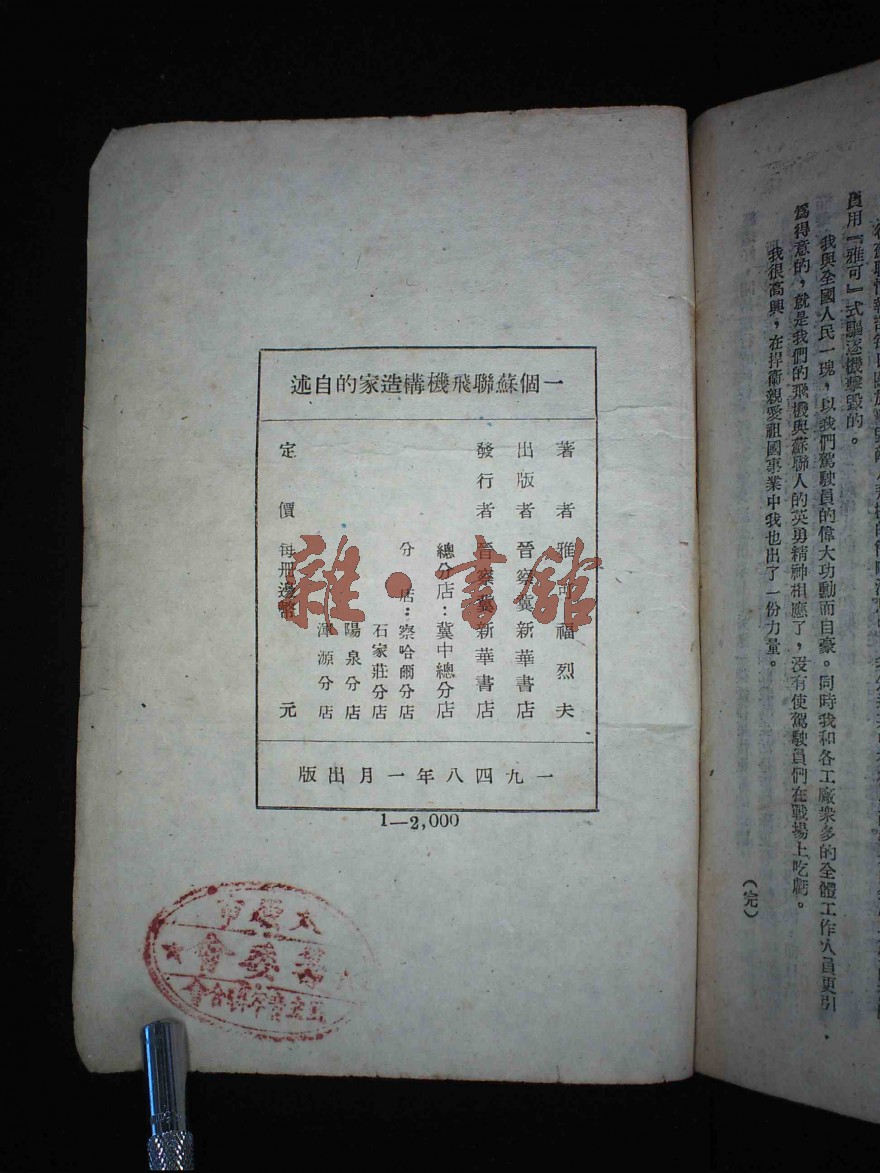 一個蘇聯飛機構造家的自述
著者 雅可福烈夫
出版者 晉察冀新華書店
發行者 晉察冀新華書店
總分店：冀中總分店
分店：察哈爾分店
石家莊分店
陽泉分店
渾源分店
定價 每冊邊幣 元
一九四八年一月出版
1—2,000
雜·書館
員用『雅可』式驅逐機擊毀的。
我與全國人民一塊，以我們駕駛員的偉大功勳而自豪。同時我和各工廠衆多的全體工作人員更引
爲得意的，就是我們的飛機與蘇聯人的英勇精神相應了，没有使駕駛員們在戰場上吃虧。
我很高興，在捍衛親愛祖國事業中我也出了一份力量。
（完）
委會